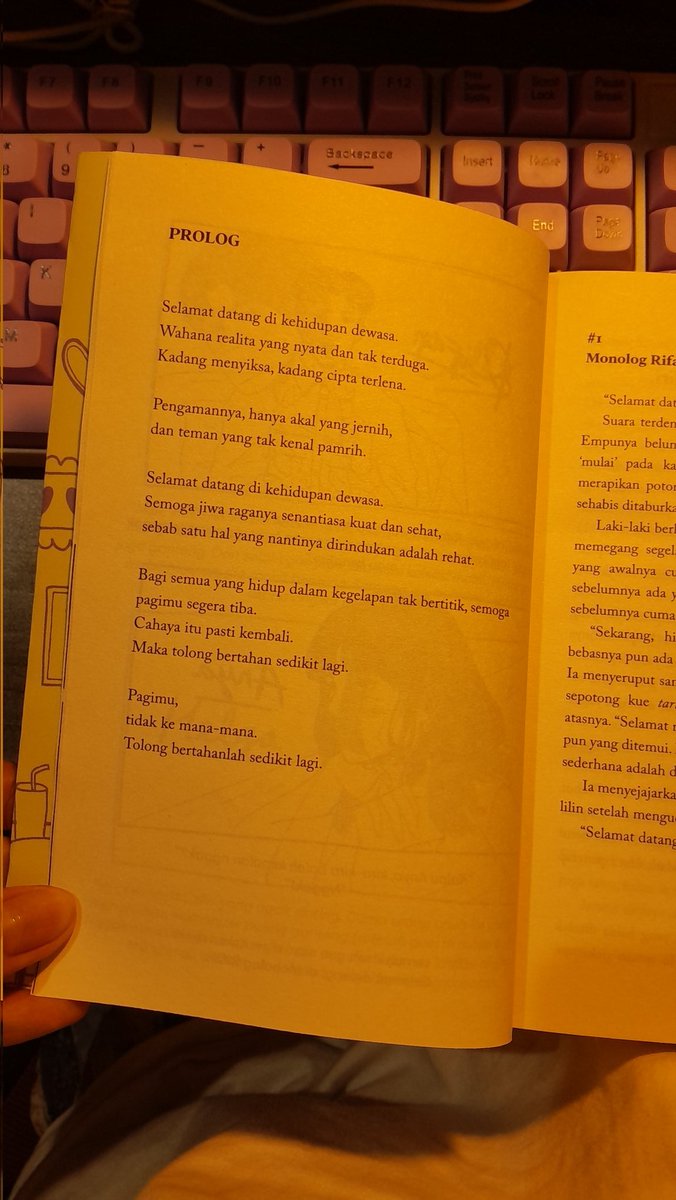 F7
F8
F9
F10
F11
F12
Scroll
Lock
Pause
Break
*
8
(
9
+
Backspace
Insert
End
Page
Up
Page
Down
K
M
PROLOG
Selamat datang di kehidupan dewasa.
Wahana realita yang nyata dan tak terduga.
Kadang menyiksa, kadang cipta terlena.
Pengamannya, hanya akal yang jernih,
dan teman yang tak kenal pamrih.
Selamat datang di kehidupan dewasa.
Semoga jiwa raganya senantiasa kuat dan sehat,
sebab satu hal yang nantinya dirindukan adalah rehat.
Bagi semua yang hidup dalam kegelapan tak bertitik, semoga
pagimu segera tiba.
Cahaya itu pasti kembali.
Maka tolong bertahan sedikit lagi.
Pagimu,
tidak ke mana-mana.
Tolong bertahanlah sedikit lagi.
#1
Monolog Rifa
“Selamat dat
Suara terden
Empunya belun
‘mulai’ pada ka
merapikan poton
sehabis ditaburka
Laki-laki berl
memegang segel
yang awalnya cu
sebelumnya ada y
sebelumnya cuma
“Sekarang, hi
bebasnya pun ada
Ia menyeruput san
sepotong kue tart
atasnya. “Selamat
pun yang ditemui.
sederhana adalah d
Ia menyejajarka
lilin setelah mengu
“Selamat datang